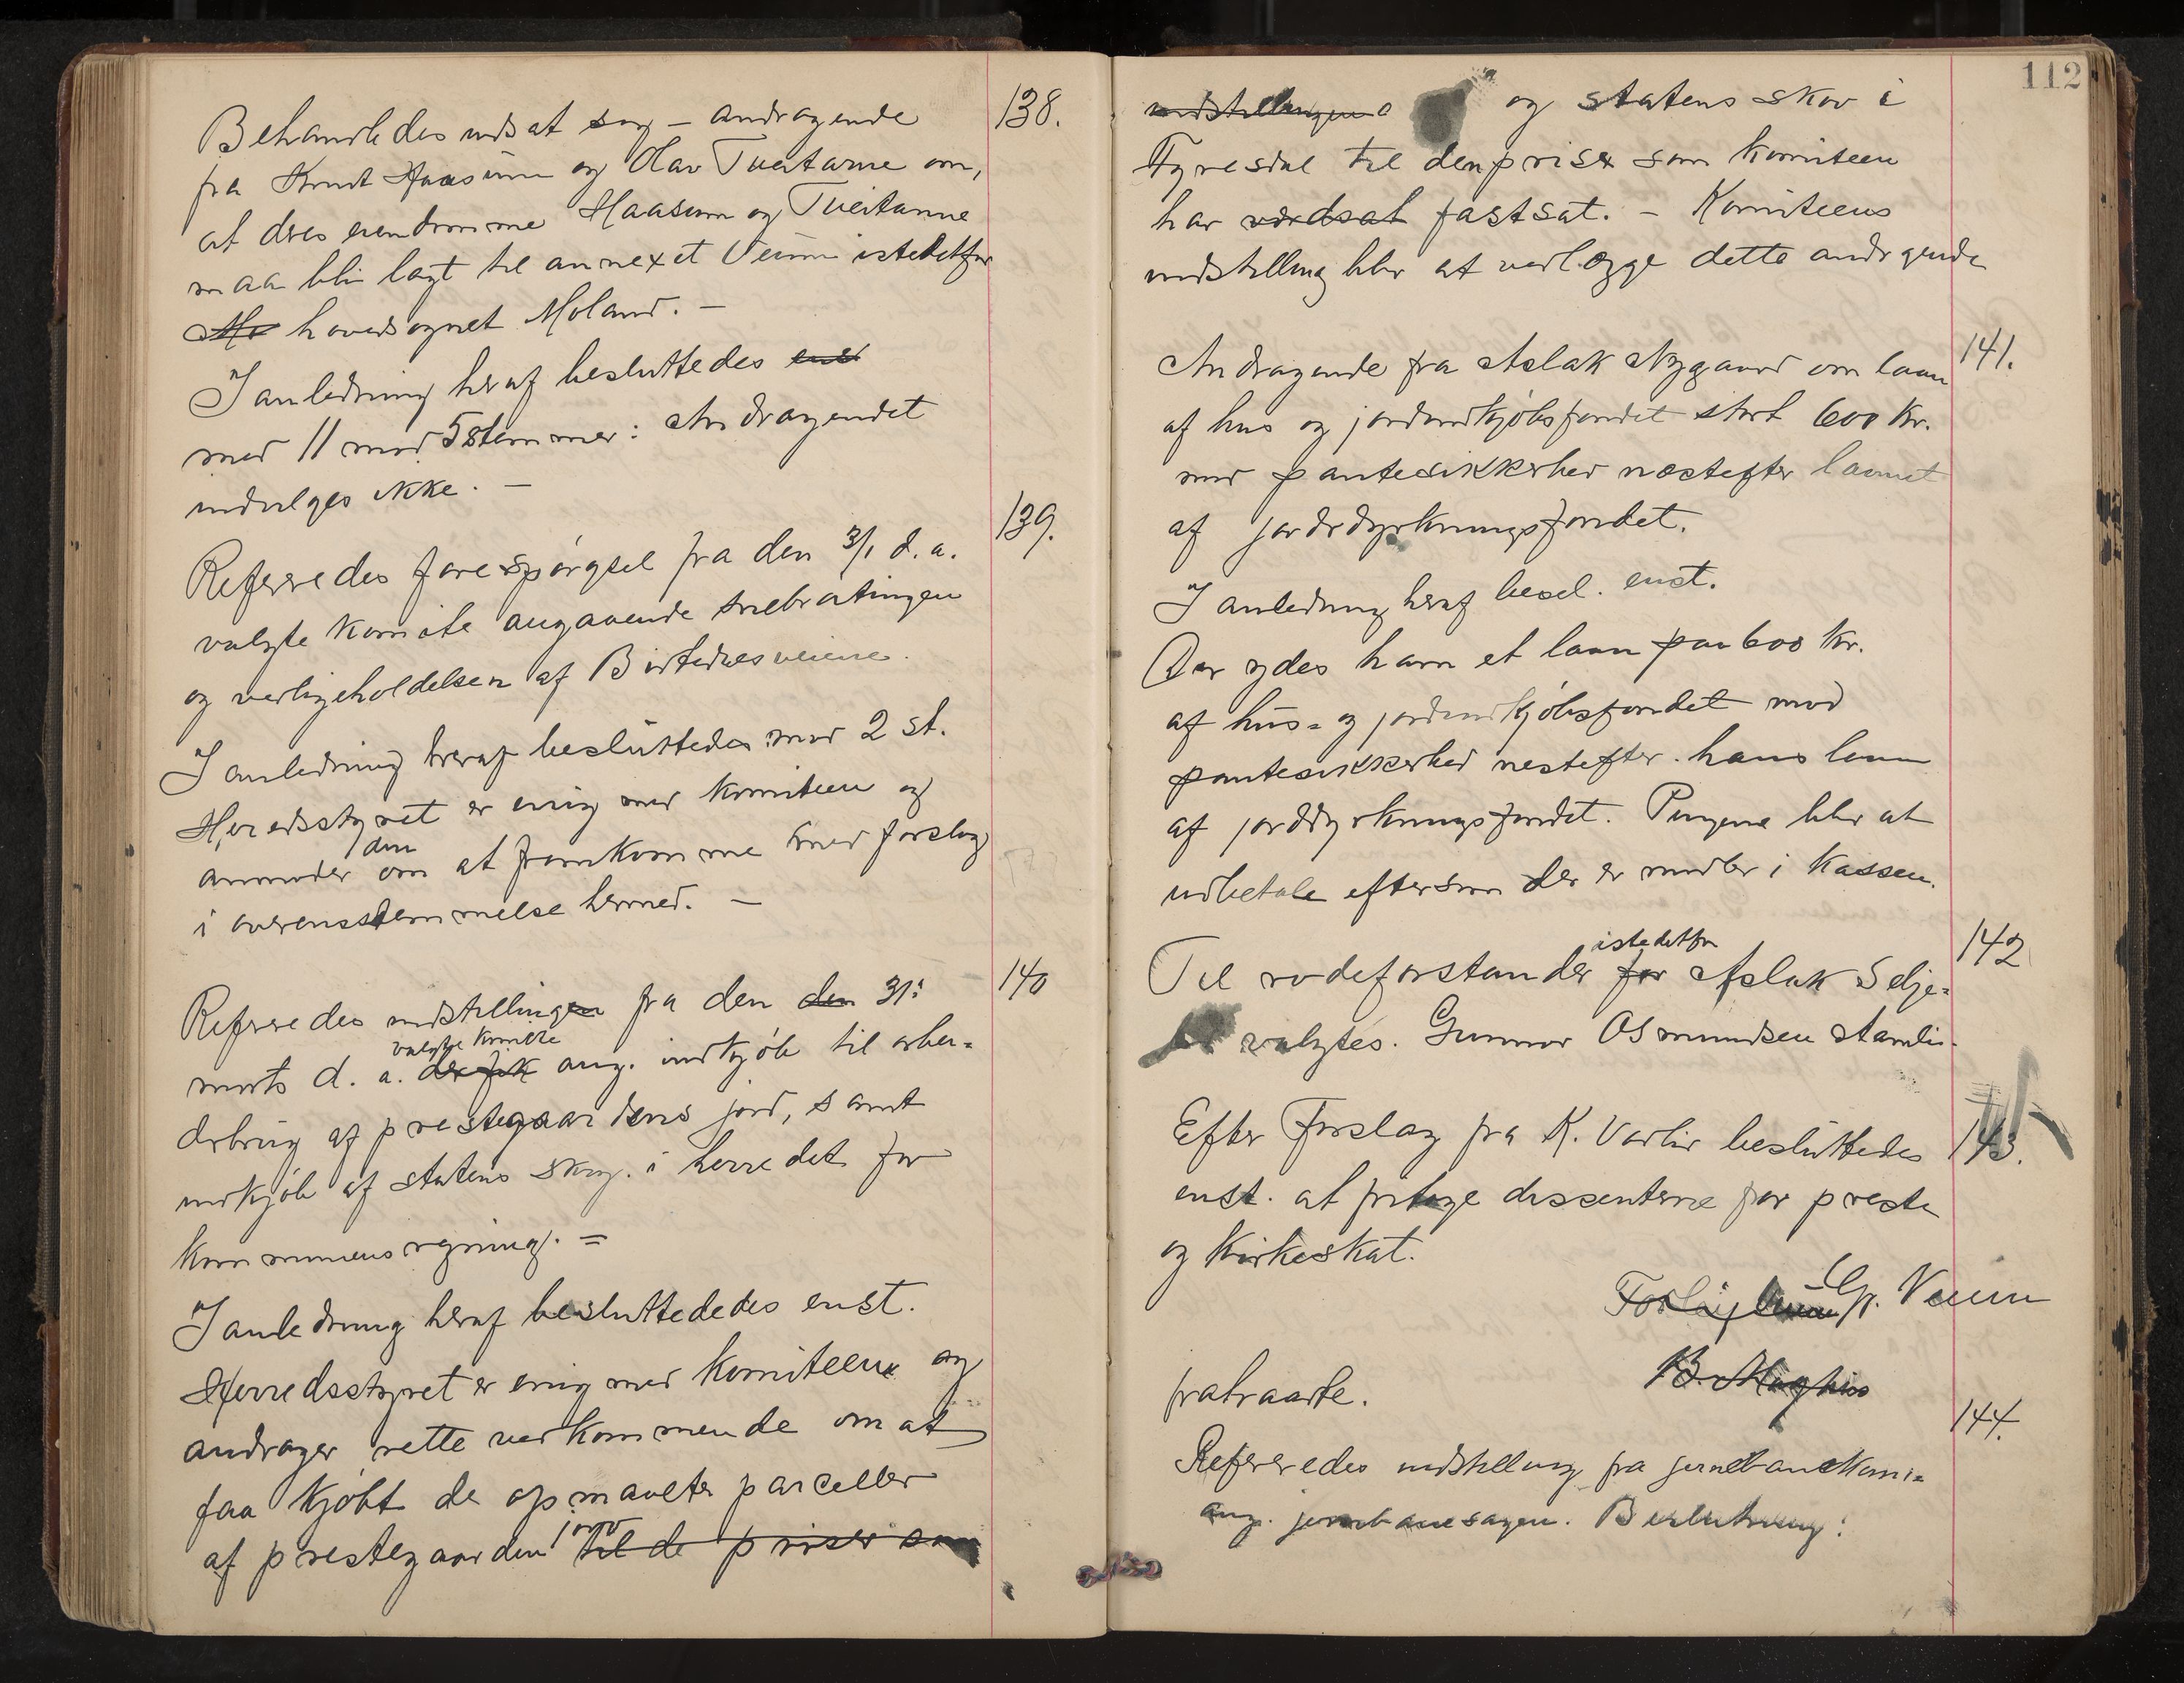 138.
Behandledes udsat sag – andragende
fra Knut Haasum og Olav Tveitanne om,
at deres eiendomme Haasum og Tveitanne
maa bli lagt til annexet Veum istedetfor
Mo hovedsognet Moland. –
I anledning heraf besluttedes enst
med 11 mod 5 stemmer: Andragendet
indvilges ikke. –
139.
Refereredes forespørgsel fra den 3/1 d. a.
valgte komite angaaende snebrøitingen
og vedligeholdelsen af Birtedalsveiene.
I anledning heraf besluttedes mod 2 st.
Heredsstyret er enig med komiteen og
den
anmoder om at fremkomme med forslag
i overensstemmelse hermed. –
140
Refereredes indstillingen fra den den 31:
valgte komite
marts d. a. der fik ang. indkjøb til arbei-
derbrug af prestegaardens jord, samt
indkjøb af statens skog i herredet for
kommunens regning. =
I anledning heraf besluttededes enst.
Herredsstyret er enig med komiteen og
andrager rette vedkommende om at
faa kjøbt de opmaalte parceller
jord
af prestegaarden til de priser som
112
indstillingen og statens skov i
Fyresdal til den priser som komiteen
har værdsat fastsat. – Komiteens
indstilling blir at vedlægge dette andragende
141.
Andragende fra Aslak Nygaard om laan
af hus og jordindkjøbsfondet stort 600 kr.
mod pantesikkerhed næstefter laanet
af jorddyrkningsfondet.
I anledning heraf besl. enst.
Der ydes ham et laan paa 600 kr.
af hus- og jordindkjøbsfondet mod
pantesikkerhed nestefter hans laan
af jorddyrkningsfondet. Pengene blir at
udbetale eftersom der er midler i kassen.
142
istedetfor
Til rodeforstander for Aslak Selje-
valgtes. Gunnar Osmundsen
143.
Efter Forslag fra K. Varlir besluttedes
enst. at fritage dissenterne for preste
og kirkeskat.
G. Veum
fratraadte.
144.
Refereredes indstilling fra jernbanekomi-
ang. jernbanesagen. Beslutning: